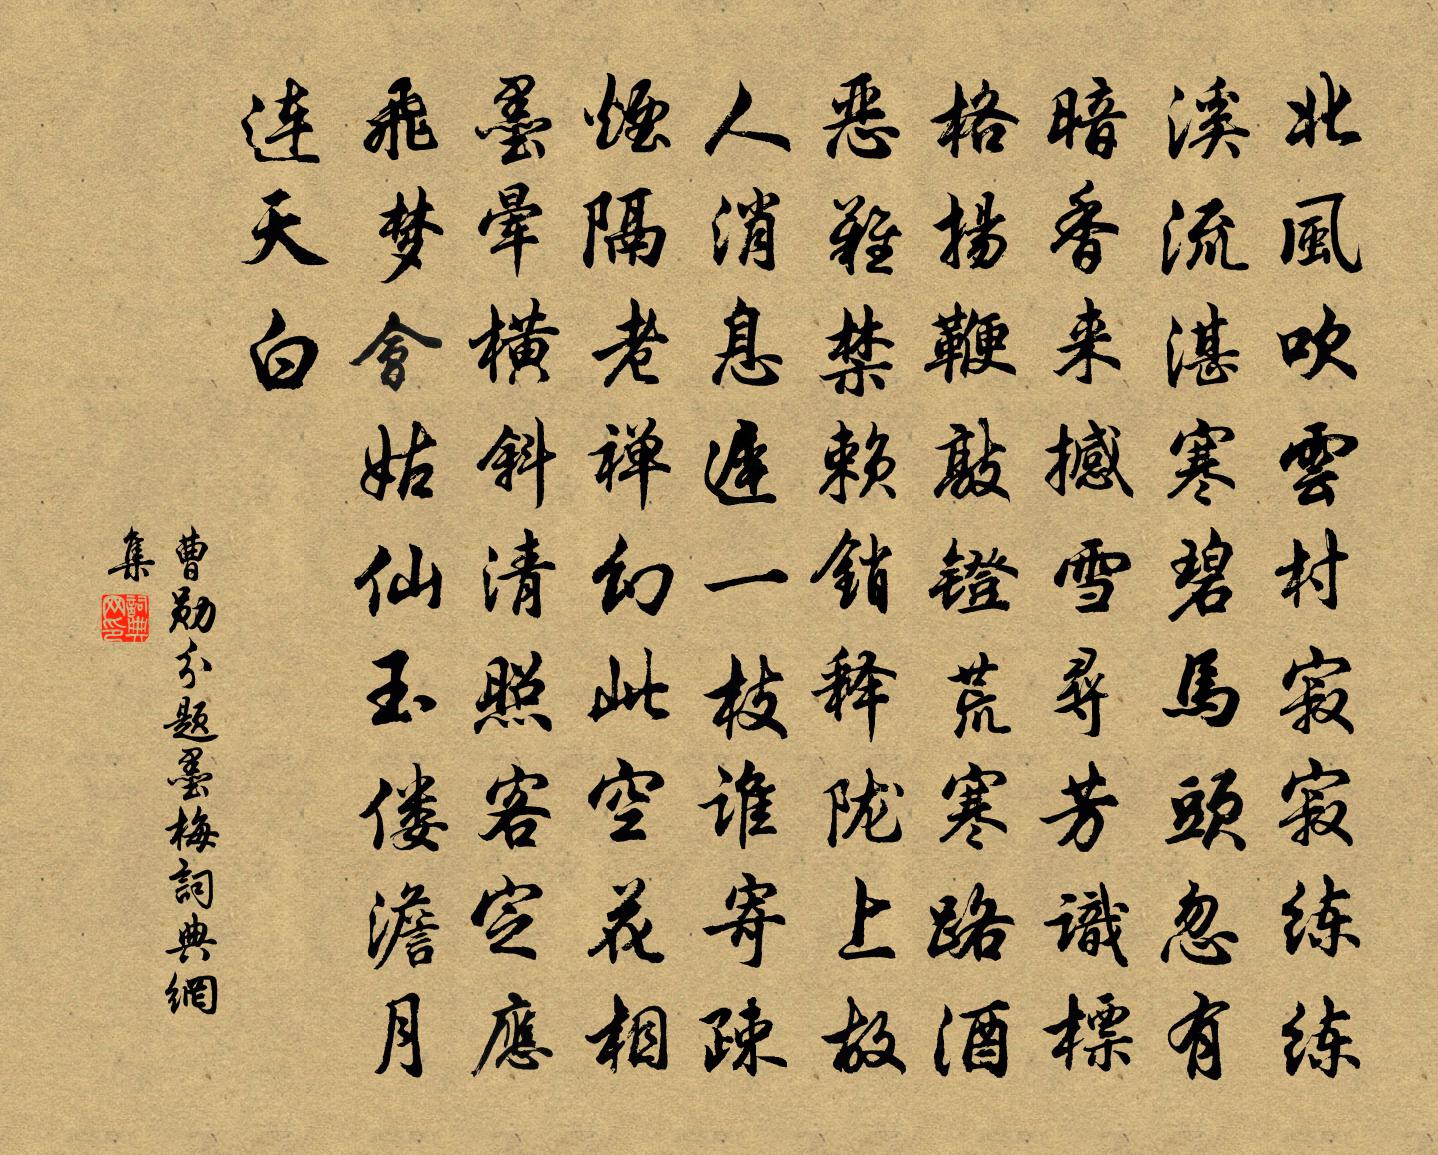 北風吹雲村寂寂练练
溪流湛寒碧馬頭忽有
暗香来撼雪尋芳識標
格揚鞭敲镫荒寒路酒
恶難禁赖銷释陇上故
人消息遲一枝谁寄疎
煙隔老禅幻此空花相
墨暈横斜清照客定應
飛梦會姑仙玉偻澹月
连天白
曹勋分题墨梅詞典網
集
詞典网印